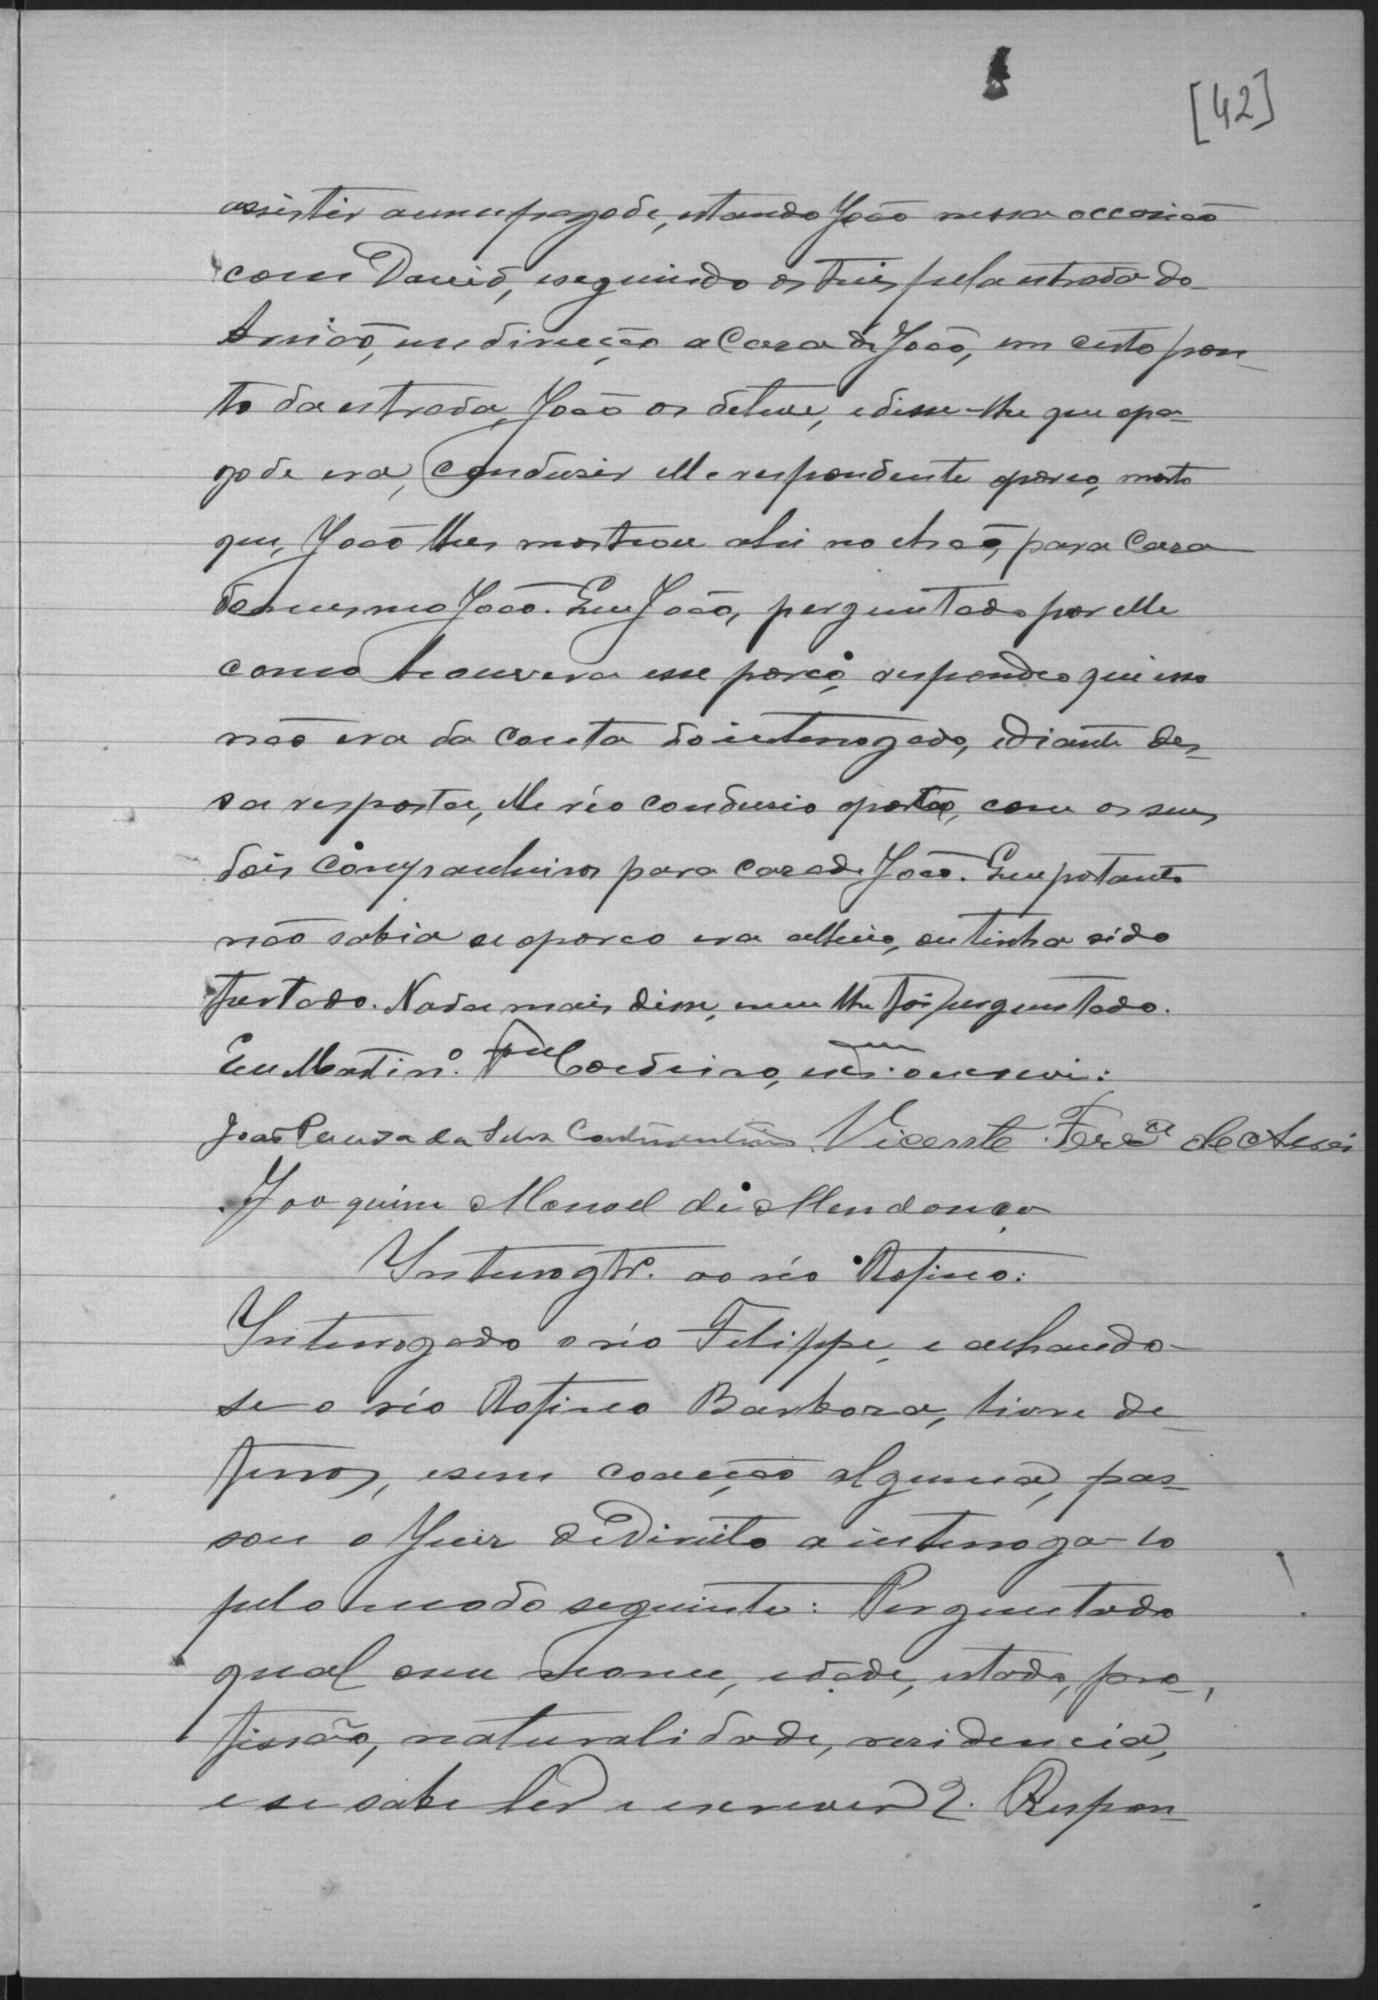 [42]
assistir a um pagode, estando João nessa occasião
com David, e seguindo os tres pela estrada do
em direcção a Casa de João, em certo pon-
to da estrada, João os deteve, e disse-lhe que o pa-
gode era, conduzir elle respondente o porco, morto
que, João lhes mostrou ahi no chão, para Casa
do mesmo João. Que João, perguntado por elle
como houvera esse porco, respondeo que isso
não era da conta do interrogado, e diante des-
sa resposta, elle réo condusio o porco, com os seus
dois companheiros para casa de João. Que portanto
não sabia se o porco era alheio, ou tinha sido
furtado. Nada mais disse, nem lhe foi perguntado.
Eu Martinº. Cordeiro, o escrevi:
João Pereira da Silva Continentino Vicente Ferrª de Assis
Joaquim Manoel de Mendonça
Interrogtº. ao réo Rofino:
Interrogado o réo Felippe, e achando-
se o réo Rofino Barboza, livre de
ferros, e sem coacção alguma, pas-
sou o Juiz de Direito a interroga-lo
pelo modo seguinte: Perguntado
qual seu nome, idade, estado, pro-
fissão, naturalidade, residencia,
e se sabe ler e escrever? Respon-